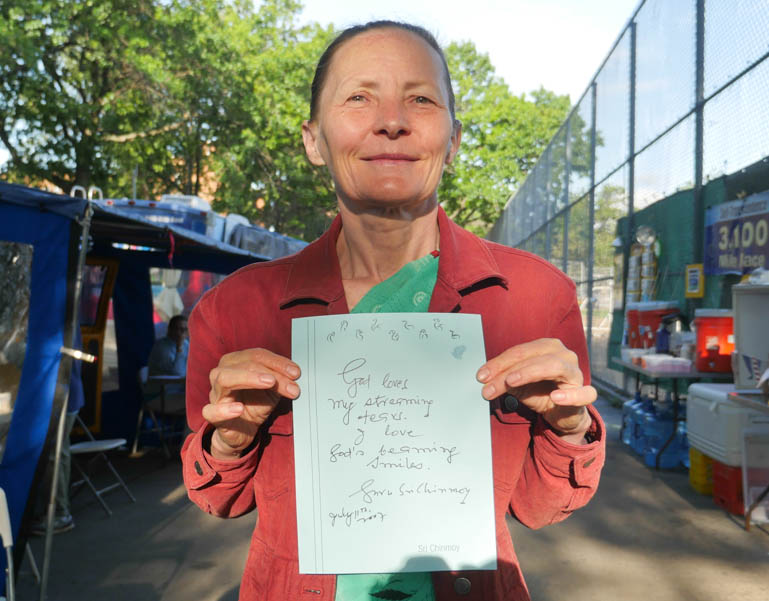 God loves
my streaming
tears.
I love
God's beaming
smiles.
Guru Sri Chinmoy
July 11th
2007
Sri Chinmoy
3,100
Mile Race